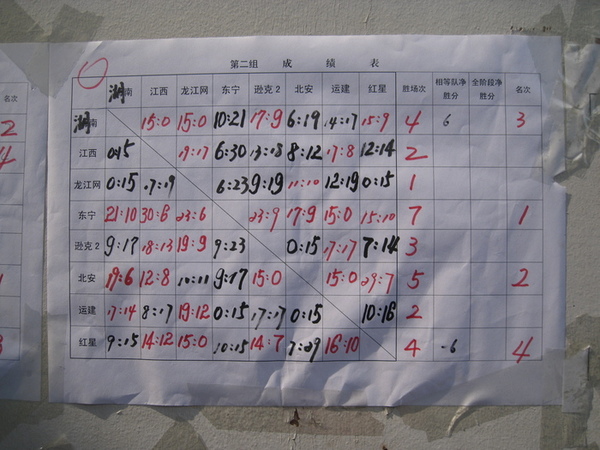 第二组 成绩表
湖南 江西 龙江网 东宁 逊克2 北安 运建 红星 胜场次 相等队净胜分 全阶段净胜分 名次
湖南 15:0 15:0 10:21 17:9 6:19 14:17 15:9 4 6 3
江西 0:15 19:17 6:30 13:18 8:12 17:8 12:14 2
龙江网 0:15 17:19 6:23 9:19 11:10 12:19 0:15 1
东宁 21:10 30:6 23:6 23:9 17:9 15:0 15:10 7 1
逊克2 9:17 18:13 19:9 9:23 0:15 17:17 7:14 3
北安 19:6 12:8 10:11 9:17 15:0 15:0 29:7 5 2
运建 17:14 8:17 19:12 0:15 17:17 0:15 10:16 2
红星 9:15 14:12 15:0 10:15 14:7 7:29 16:10 4 -6 4
名次
2
4